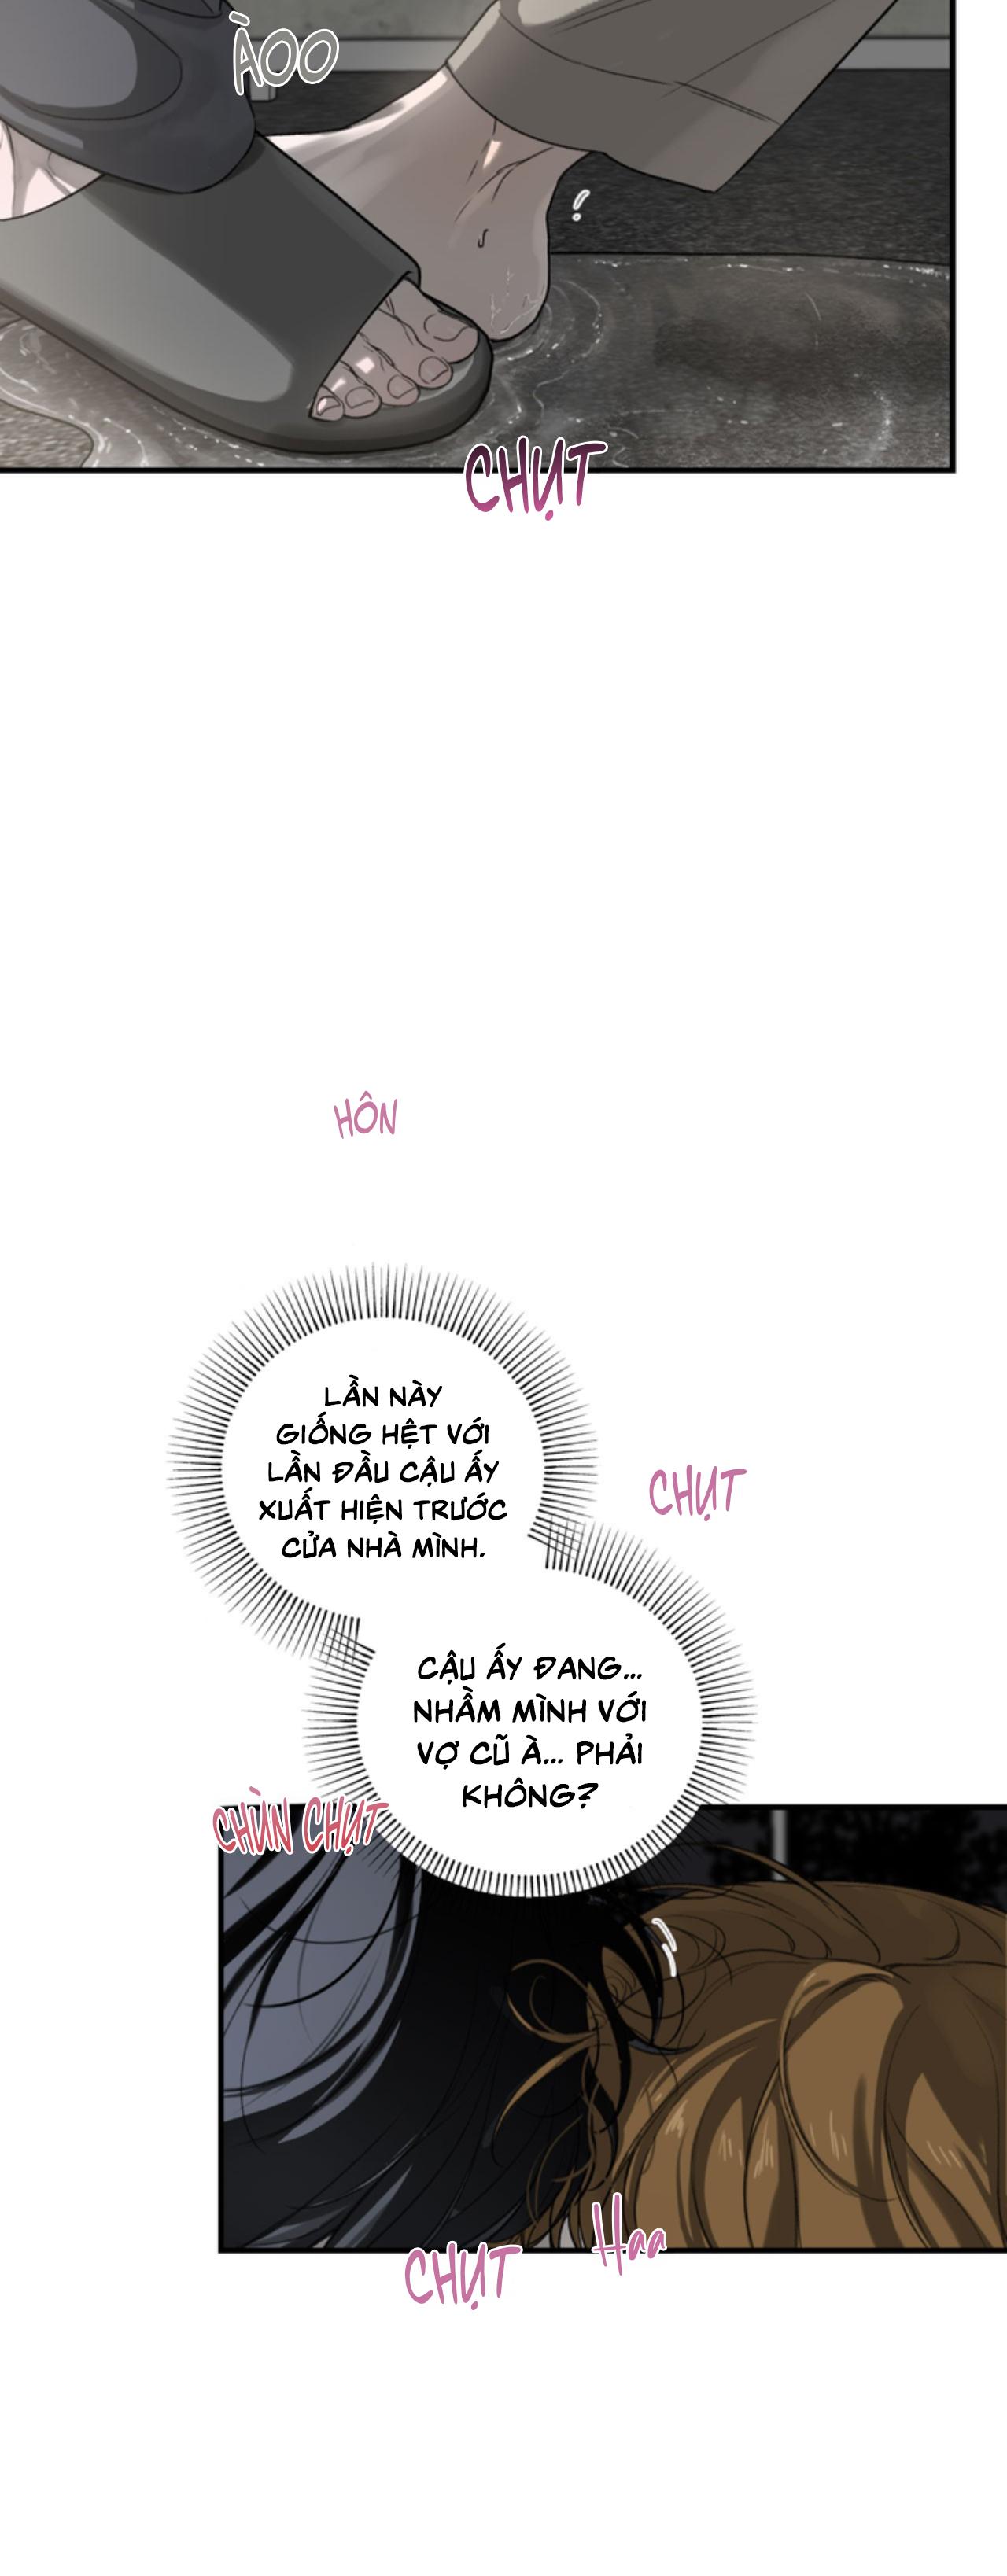 ÀOO
CHỤT
HÔN
LẦN NÀY
GIỐNG HỆT VỚI
LẦN ĐẦU CẬU ẤY
XUẤT HIỆN TRƯỚC
CỬA NHÀ MÌNH.
CHỤT
CẬU ẤY ĐANG...
NHẦM MÌNH VỚI
VỢ CŨ À... PHẢI
KHÔNG?
CHÙN CHỤT
Haa
CHỤT